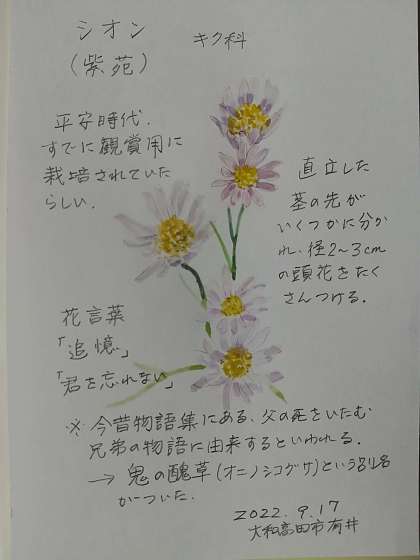 シオン
(紫苑)
キク科
平安時代、
すでに観賞用に
栽培されていた
らしい。
直立した
茎の先が
いくつかに分か
れ、径2〜3cm
の頭花をたく
さんつける。
花言葉
「追憶」
「君を忘れない」
※ 今昔物語集にある、父の死をいたむ
兄弟の物語に由来するといわれる。
→ 鬼の醜草(オニノシコグサ)という別名
がついた。
2022.9.17
大和高田市有井